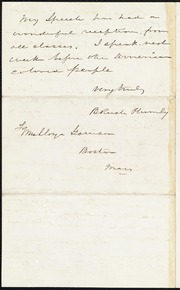 My Speech has had a
wonderful reception, from
all classes. I speak next
week before the American
colored people
Very truly
B Rush Plumly
Wm Lloyd Garrison
Boston
Mass